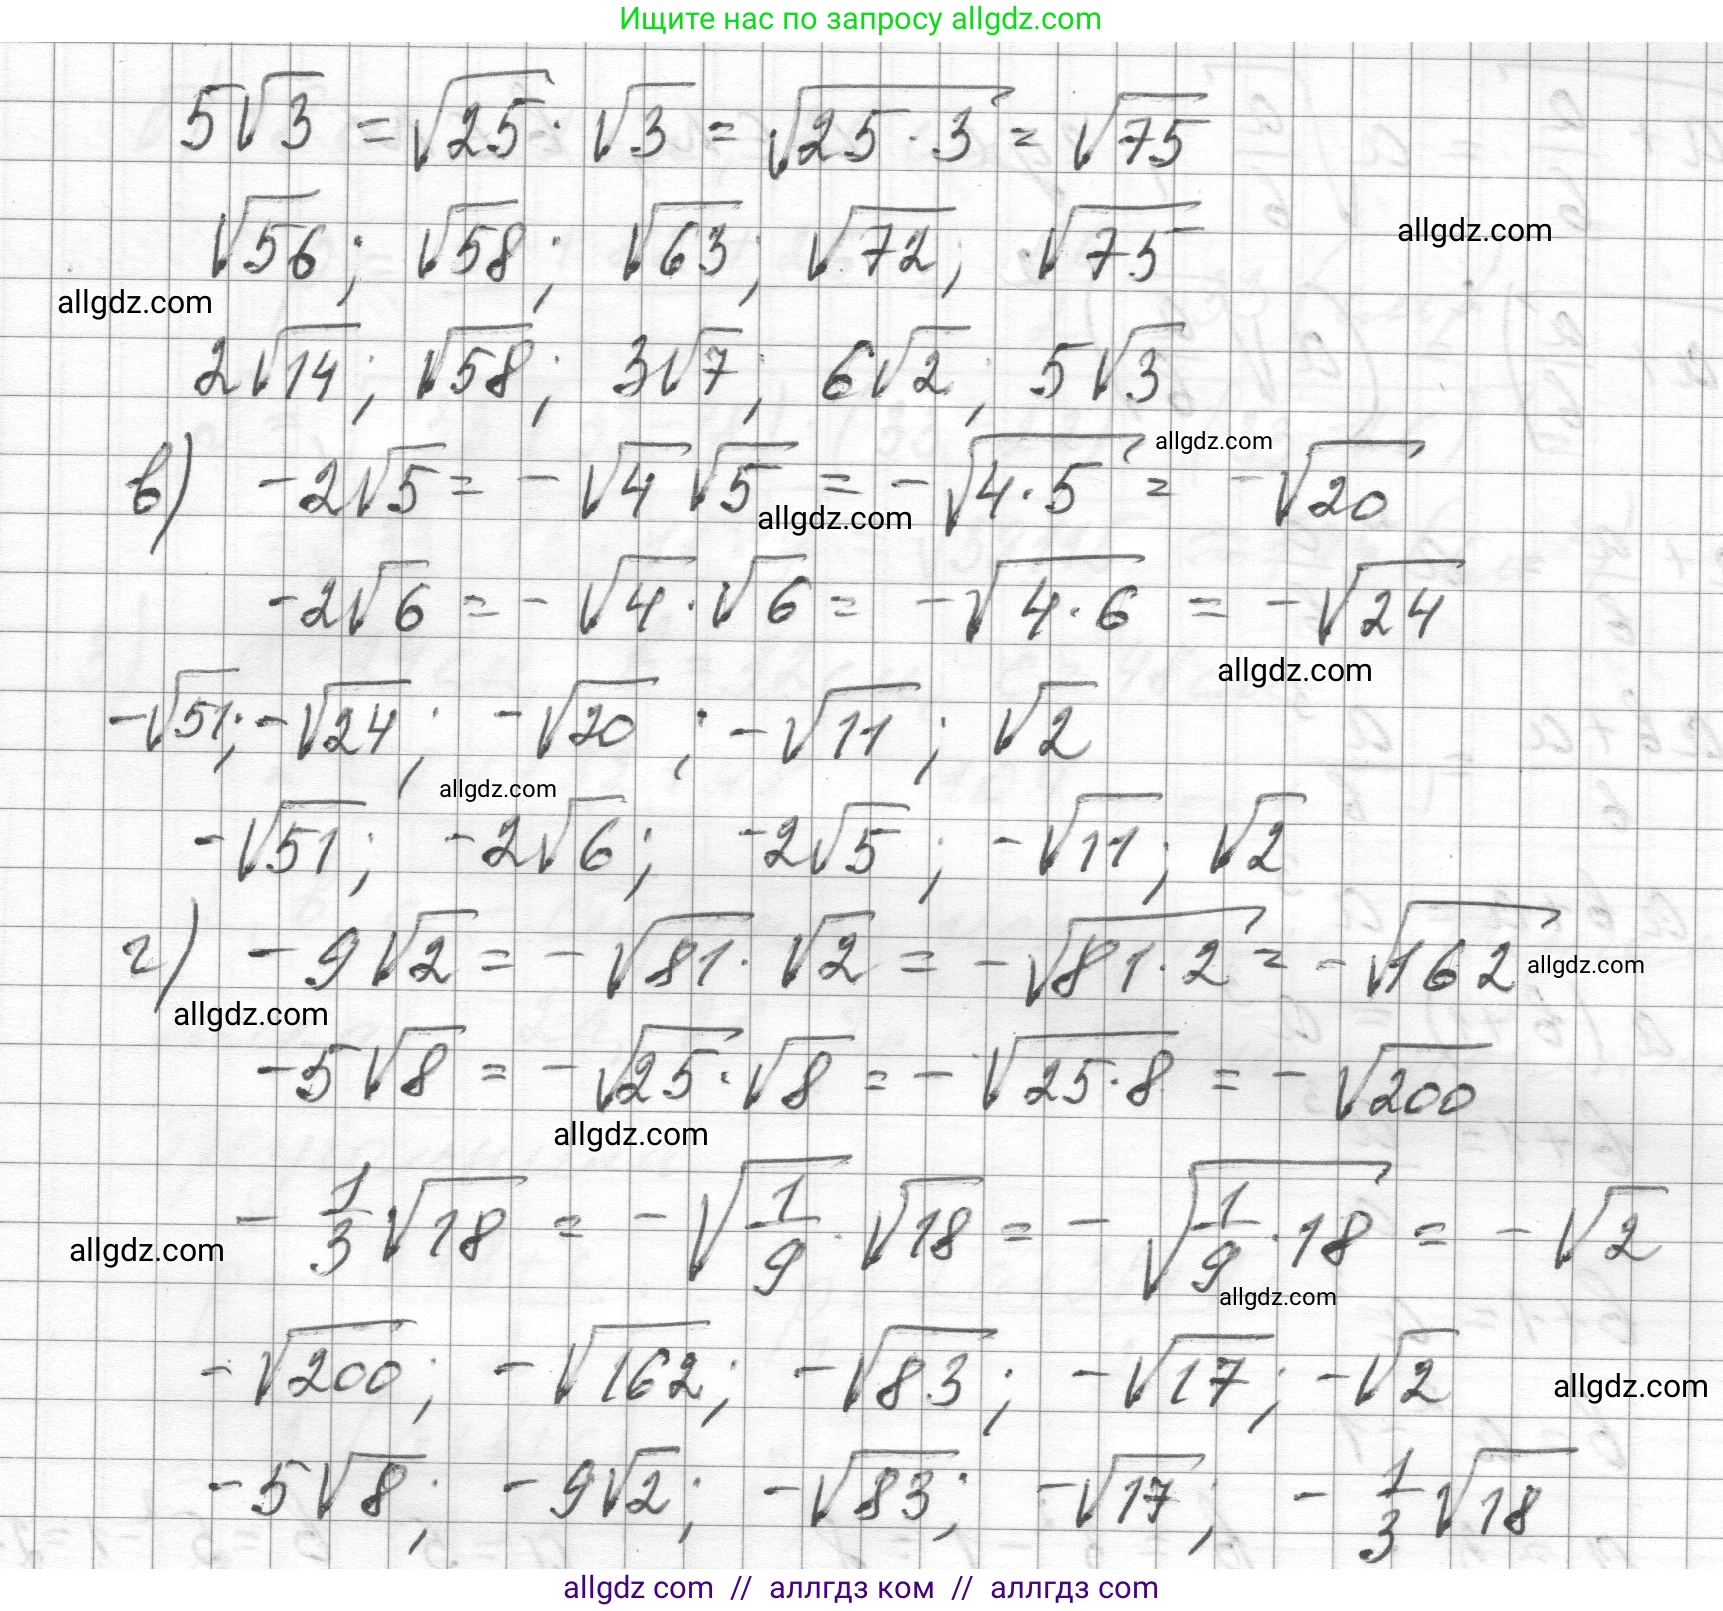 Ищите нас по запросу allgdz.com
5√3 = √25 · √3 = √(25 · 3) = √75
√56; √58; √63; √72; √75
allgdz.com
allgdz.com
2√14; √58; 3√7; 6√2; 5√3
allgdz.com
в) -2√5 = -√4 √5 = -√(4·5) = -√20
allgdz.com
-2√6 = -√4 · √6 = -√(4·6) = -√24
allgdz.com
-√51; -√24; -√20; -√11; √2
allgdz.com
-√51; -2√6; -2√5; -√11; √2
г) -9√2 = -√81 · √2 = -√(81·2) = -√162
allgdz.com
allgdz.com
-5√8 = -√25 · √8 = -√(25·8) = -√200
allgdz.com
-1/3√18 = -√(1/9) · √18 = -√(1/9 · 18) = -√2
allgdz.com
allgdz.com
-√200; -√162; -√83; -√17; -√2
allgdz.com
-5√8; -9√2; -√83; -√17; -1/3√18
allgdz com // аллгдз ком // аллгдз com